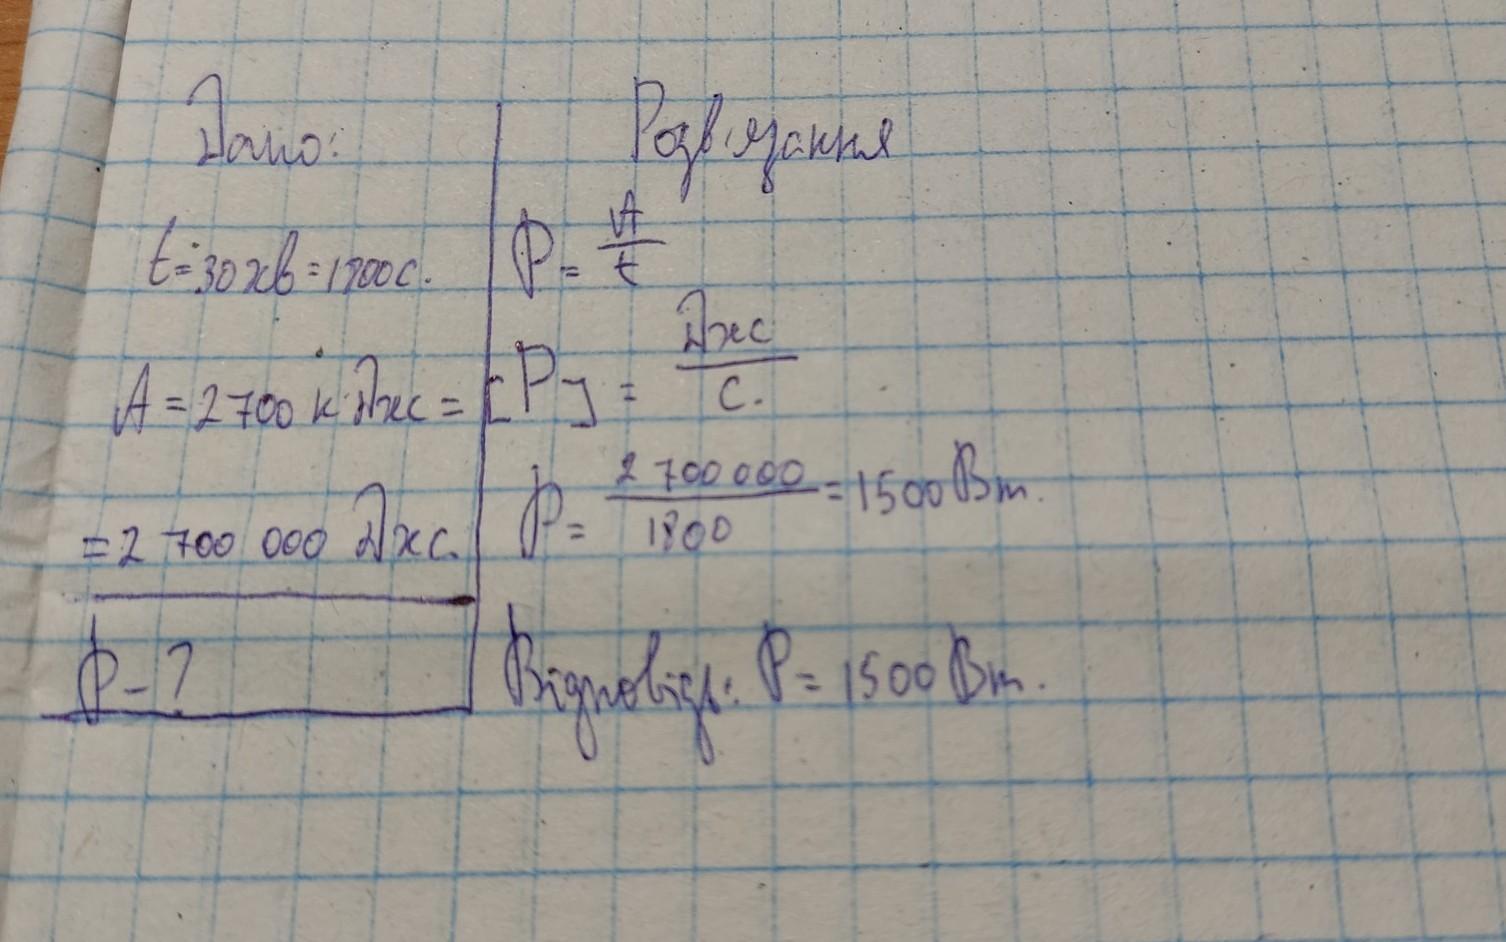 Дано:
t = 30 хв = 1800 с.
A = 2700 к Дж =
= 2 700 000 Дж.
P - ?
Розв'язання
P = A / t
[P] = Дж / с.
P = 2 700 000 / 1800 = 1500 Вт.
Відповідь: P = 1500 Вт.